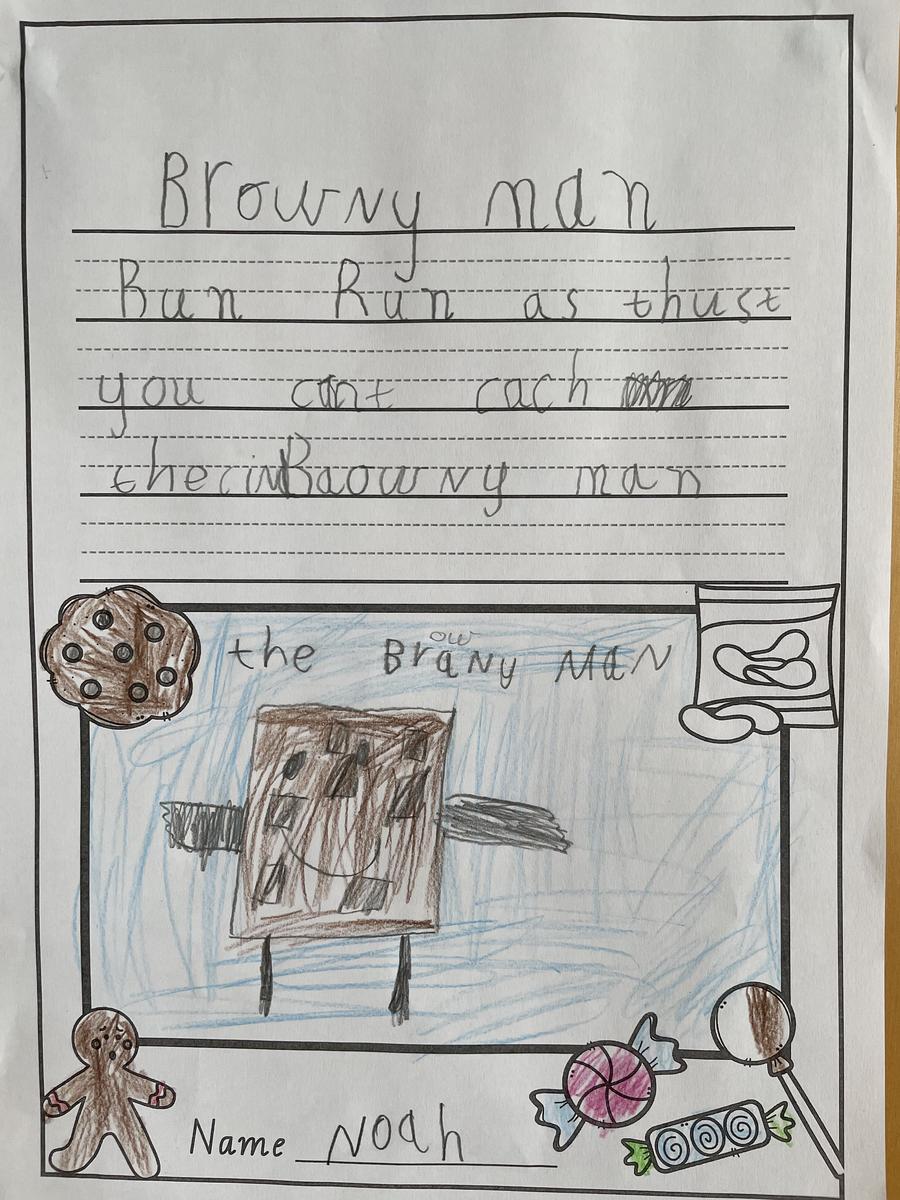 Browny man
Run Run as thust
you cant cach
thecinBaowny man
the Brany MAN
ow
Name Noah